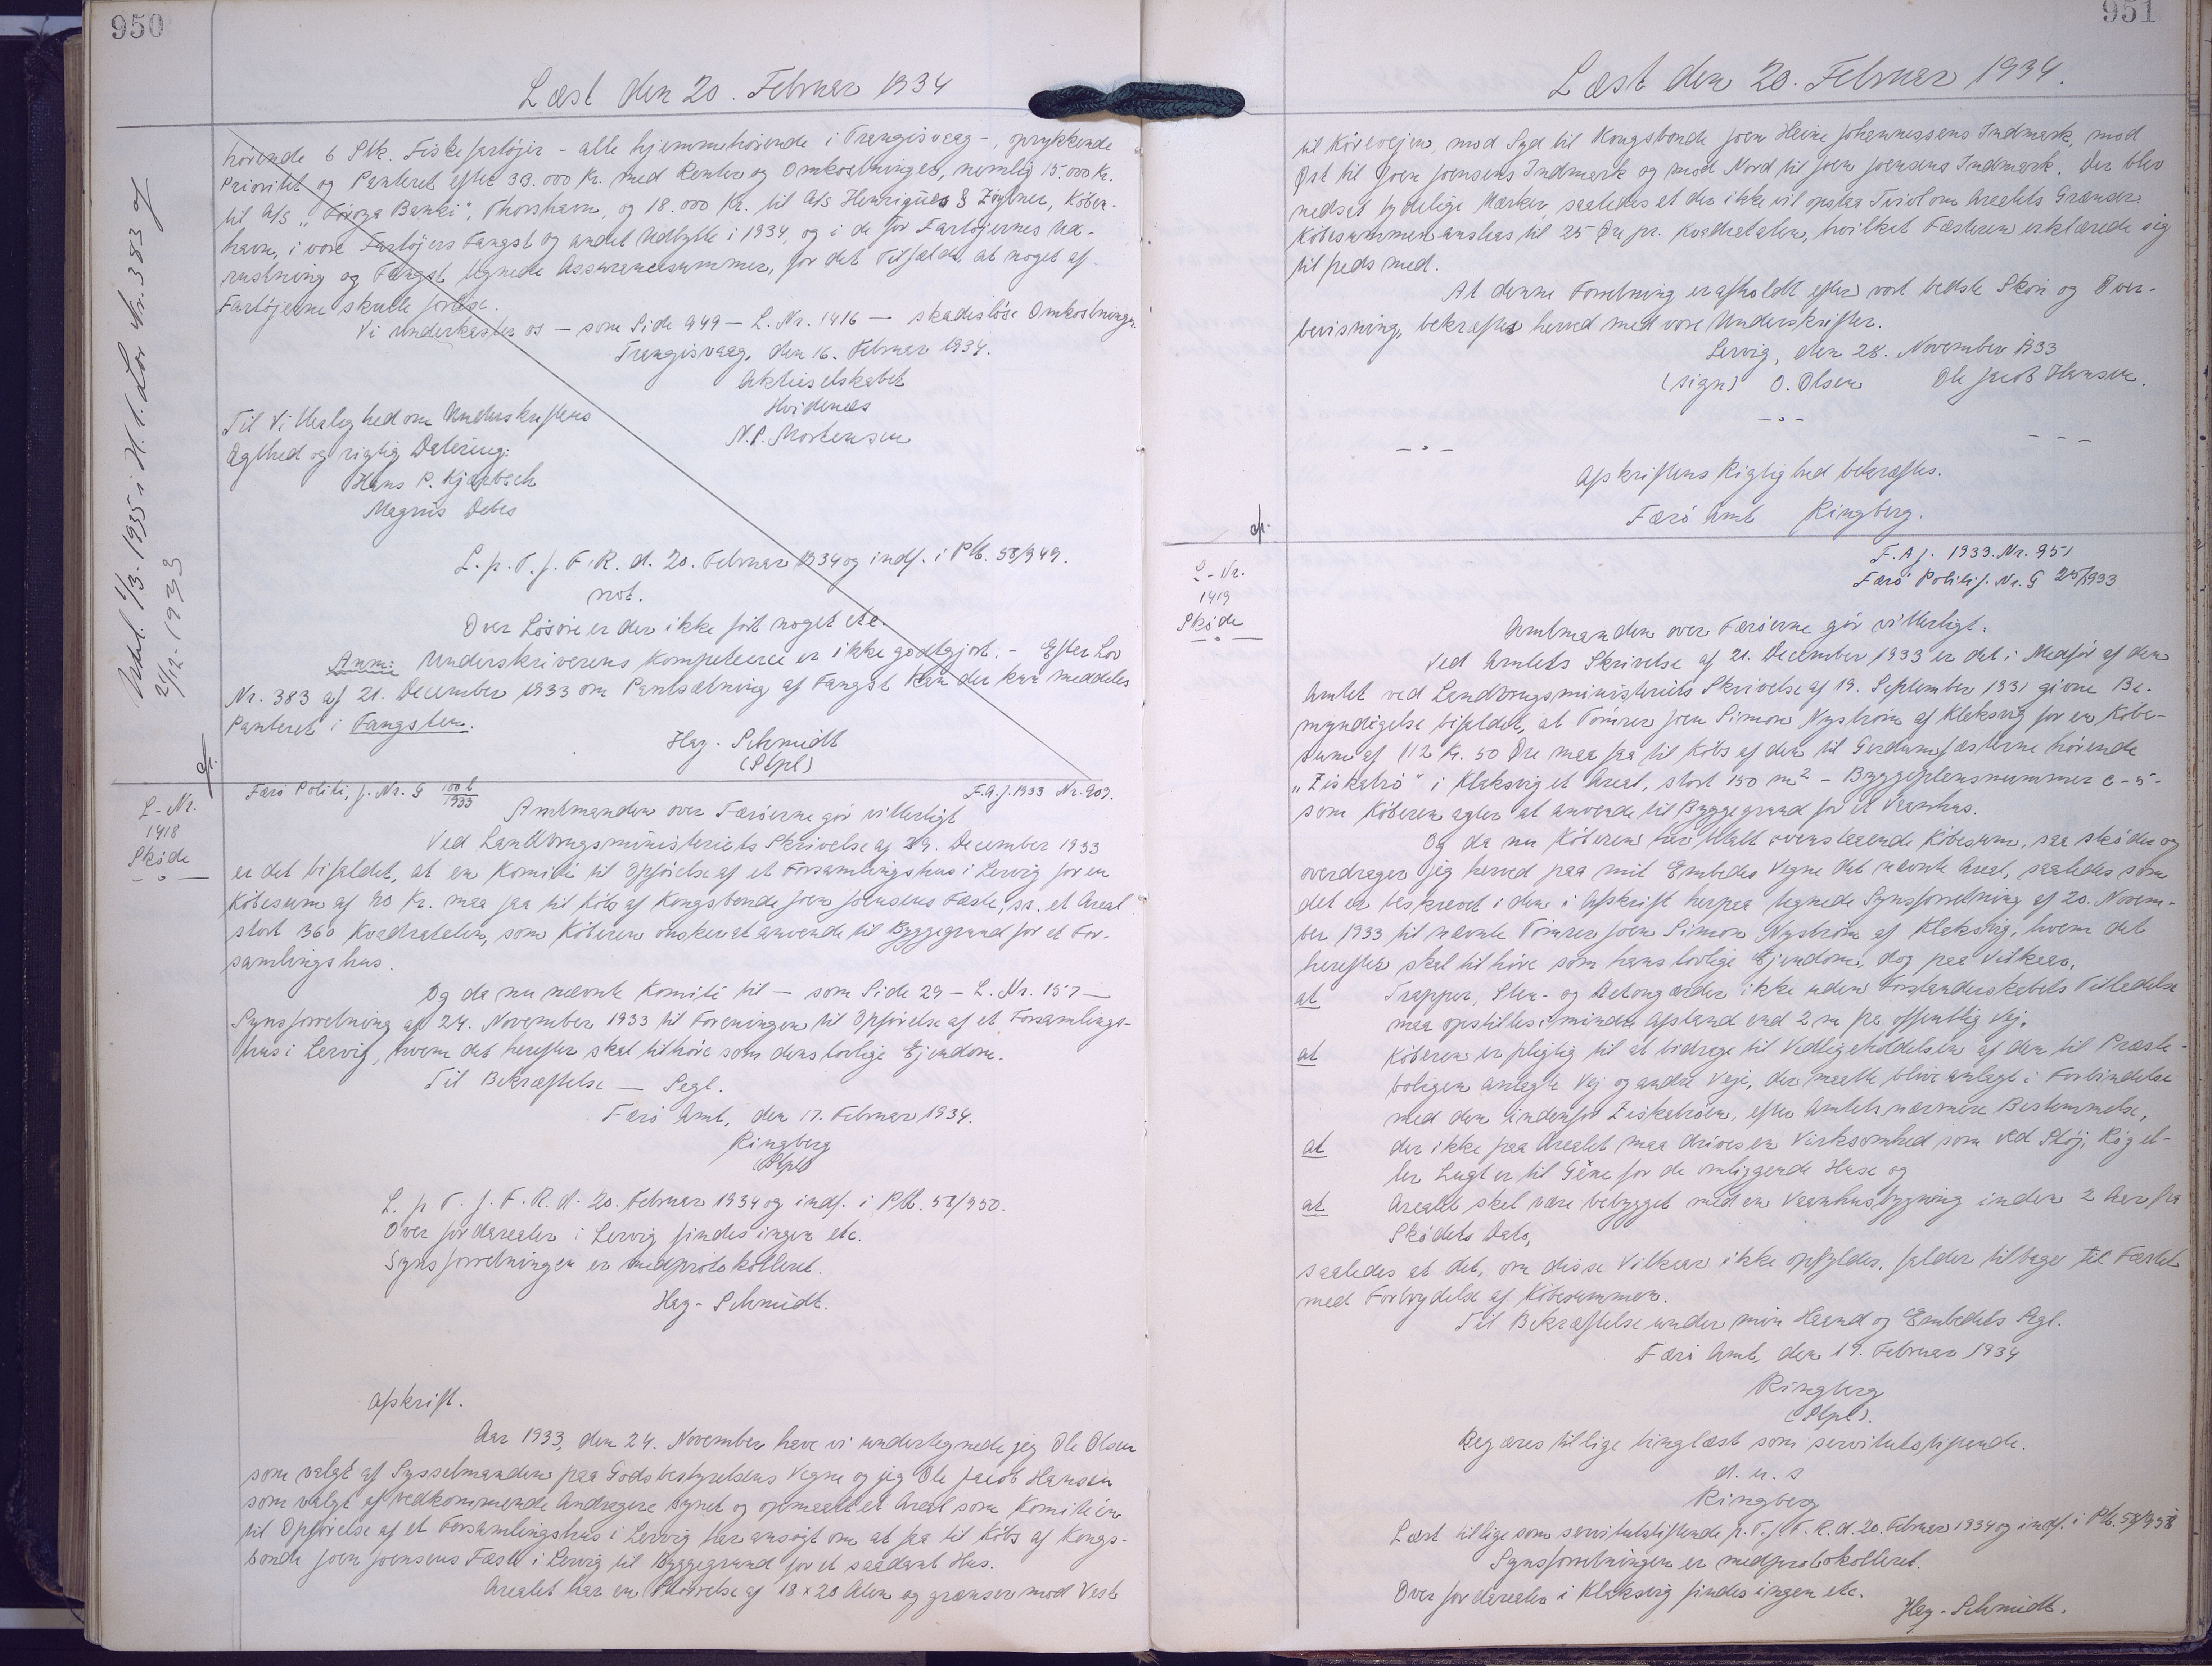 950
Læst den 20. Februar 1934
hørende 6 Stk. Fiskefartøjer - alle hjemmehørende i Trangisvaag -, oprykkende
Prioritet og Panteret efter 33.000 Kr. med Renter og Omkostninger, nemlig 15.000 Kr.
til A/S "Føroya Banki", Thorshavn, og 18.000 Kr. til A/S Henriques & Zöylner, Köben-
havn, i vore Fartøjers Fangst og andet Udbytte i 1934, og i de for Fartøjernes Ud-
rustning og Fangst tegnede Assurancesummer, for det Tilfælde at noget af
Fartøjerne skulle forlise.
Vi underkaster os - som Side 949 - L. Nr. 1416 - skadesløse Omkostninger.
Trangisvaag, den 16. Februar 1934.
Aktieselskabet
Hvidenæs
N.P. Mortensen
Til Vitterlighed om Underskriftens
Ægthed og rigtig Datering:
Hans P. Kjølbech
Magnus Debes
L. p. T. f. F. R. d. 20. Februar 1934 og indf. i Ptb. 58/949.
not.
Over Løsøre er der ikke ført noget etc.
Anm: Underskriverens Kompetence er ikke godtgjort. - Efter Lov
Nr. 383 af 21. December 1933 om Pantsætning af Fangst kan der kun meddeles
Panteret i Fangsten.
Hag-Schmidt
(Stpl)
Udsl. 1/3. 1935 i H. t. Lov Nr. 383 af
21/12-1933
cfr.
L-Nr.
1418
Skøde
Færø Politi, J. Nr. G 100 b/1933
F.A.J. 1933 Nr. 909.
Amtmanden over Færøerne gør vitterligt
Ved Landbrugsministeriets Skrivelse af 29. December 1933
er det bifaldet, at en Komité til Opførelse af et Forsamlingshus i Lervig for en
Købesum af 90 Kr. maa faa til Købs af Kongsbonde Joen Joensens Fæste, sr. et Areal
stort 360 Kvadratalen, som Køberen ønsker at anvende til Byggegrund for et For-
samlingshus.
Og da nu nævnte Komité til - som Side 29 - L. Nr. 157 -
Synsforretning af 24. November 1933 til Foreningen til Opførelse af et Forsamlings-
hus i Lervig, hvem det herefter skal tilhøre som dens lovlige Ejendom.
Til Bekræftelse - Segl.
Færø Amt, den 17. Februar 1934.
Ringberg
(Stpl)
L. p T. f. F. R. d. 20. Februar 1934 og indf. i Ptb. 58/950.
Over Jordarealer i Lervig findes ingen etc.
Synsforretningen er medprotokolleret.
Hag-Schmidt.
Afskrift.
Aar 1933, den 24. November have vi undertegnede jeg Ole Olsen
som valgt af Sysselmanden paa Godsbestyrelsens Vegne og jeg Ole Jacob Hansen
som valgt af vedkommende Andragere synet og opmaalt et Areal som Komitéen
til Opførelse af et Forsamlingshus i Lervig har ansøgt om at faa til Købs af Kongs-
bonde Joen Joensens Fæste i Lervig til Byggegrund for et saadant Hus.
Arealet har en Størrelse af 18 x 20 Alen og grænser mod Vest
951
Læst den 20. Februar 1934.
til Kørevejen, mod Syd til Kongsbonde Joen Heine Johannessens Indmark, mod
Øst til Joen Joensens Indmark og mod Nord til Joen Joensens Indmark. Der blev
nedsat tydelige Mærker, saaledes at der ikke vil opstaa Tvivl om Arealets Grænser.
Købesummen ansaas til 25 Øre pr. Kvadratalen, hvilket Fæsteren erklærede sig
tilfreds med.
At denne Forretning er afholdt efter vort bedste Skøn og Over-
bevisning, bekræftes herved med vore Underskrifter.
Lervig, den 28. November 1933
(sign) O. Olsen Ole Jacob Hansen.
- o -
- o - - - -
Afskriftens Rigtighed bekræftes.
Færø Amt Ringberg.
cfr.
L-Nr.
1419
Skøde
F.A.J. 1933. Nr. 951
Færø Politi J. Nr. G 25/1933
Amtmanden over Færøerne gør vitterligt.
Ved Amtets Skrivelse af 21. December 1933 er det i Medfør af den
Amtet ved Landbrugsministeriets Skrivelse af 19. September 1931 givne Be-
myndigelse bifaldet, at Tømrer Joen Simon Nystrøm af Klaksvig for en Købe-
sum af 112 Kr. 50 Øre maa faa til Købs af den til Gerdumfæsterne hørende
"Ziskatrø" i Klaksvig et Areal, stort 150 m² - Byggeplansnummer c-5-
som Køberen agter at anvende til Byggegrund for et Vaanhus.
Og da nu Køberen har betalt ovenstaaende Købesum, saa skøder og
overdrager jeg herved paa mit Embedes Vegne det nævnte Areal, saaledes som
det er beskrevet i den i Afskrift herpaa tegnede Synsforretning af 20. Novem-
ber 1933 til nævnte Tømrer Joen Simon Nystrøm af Klaksvig, hvem det
herefter skal tilhøre som hans lovlige Ejendom, dog paa Vilkaar,
at Trapper, Sten- og Betongærder ikke uden Forstanderskabets Tilladelse
maa opstilles i mindre Afstand end 2 m fra offentlig Vej,
at Køberen er pligtig til at bidrage til Vedligeholdelsen af den til Præste-
boligen anlagte Vej og andre Veje, der maatte blive anlagt i Forbindelse
med den indenfor Ziskatrøen, efter Amtets nærmere Bestemmelse,
at der ikke paa Arealet maa drives en Virksomhed som ved Støj, Røg el-
ler Lugt er til Gêne for de omliggende Huse og
at Arealet skal være bebygget med en Vaanhusbygning inden 2 Aar fra
Skødets Dato,
saaledes at det, om disse Vilkaar ikke opfyldes, falder tilbage til Fæstet
med Fortrydelse af Købesummen.
Til Bekræftelse under min Haand og Embedets Segl.
Færø Amt, den 19. Februar 1934
Ringberg
(Stpl).
Begæres tillige tinglæst som servitutstiftende.
d. u. s
Ringberg
Læst tillige som servitutstiftende p. T. f. F. R. d. 20. Februar 1934 og indf. i Ptb. 58/951
Synsforretningen er medprotokolleret.
Over Jordarealer i Klaksvig findes ingen etc.
Hag-Schmidt.